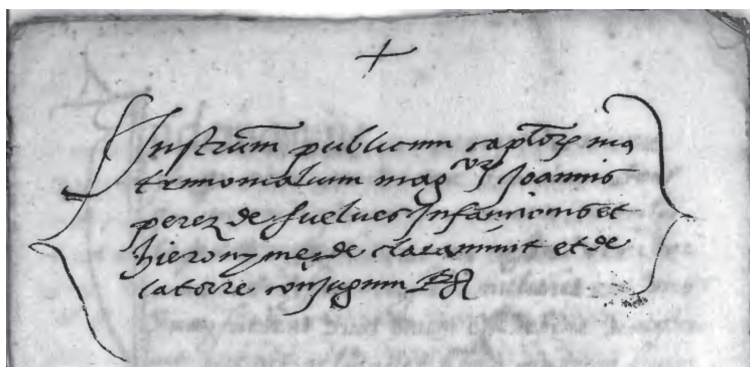 Instrum publicum captorz ma
trimonialium mag vz Joannis
perez de fuelues Infancionis et
hieronyme de claramunt et de
latorre conjugum